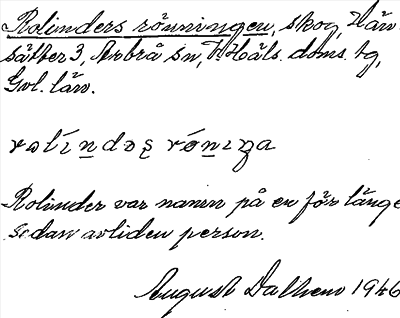 Rolinders rönningen, skog, Hän
sätter 3, Arbrå sn, V. Häls. doms. tg,
Gvl. län.
Rolinder var namn på en för länge
sedan avliden person.
August Dalhem 1946